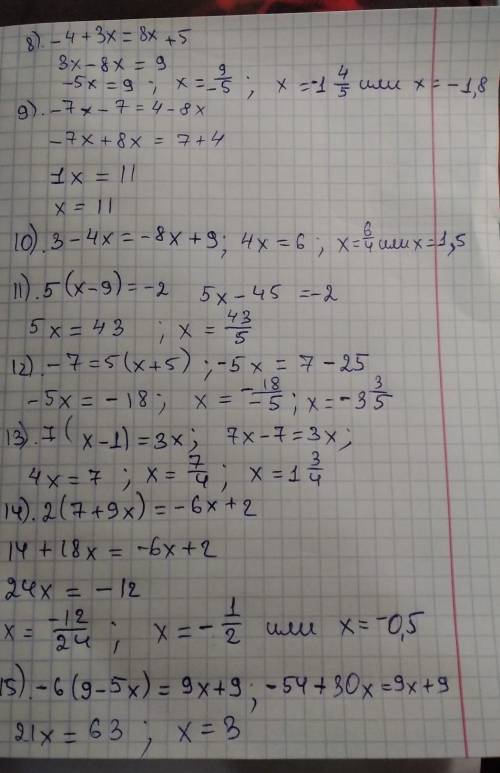 8). -4 + 3x = 8x + 5
3x - 8x = 9
-5x = 9 ; x = 9/-5 ; x = -1 4/5 или x = -1,8
9). -7x - 7 = 4 - 8x
-7x + 8x = 7 + 4
1x = 11
x = 11
10). 3 - 4x = -8x + 9; 4x = 6 ; x = 6/4 или x = 1,5
11). 5(x - 9) = -2 5x - 45 = -2
5x = 43 ; x = 43/5
12). -7 = 5(x + 5) ; -5x = 7 - 25
-5x = -18; x = -18/-5 ; x = -3 3/5
13). 7(x - 1) = 3x; 7x - 7 = 3x;
4x = 7 ; x = 7/4 ; x = 1 3/4
14). 2(7 + 9x) = -6x + 2
14 + 18x = -6x + 2
24x = -12
x = -12/24 ; x = -1/2 или x = -0,5
15). -6(9 - 5x) = 9x + 9; -54 + 30x = 9x + 9
21x = 63 ; x = 3